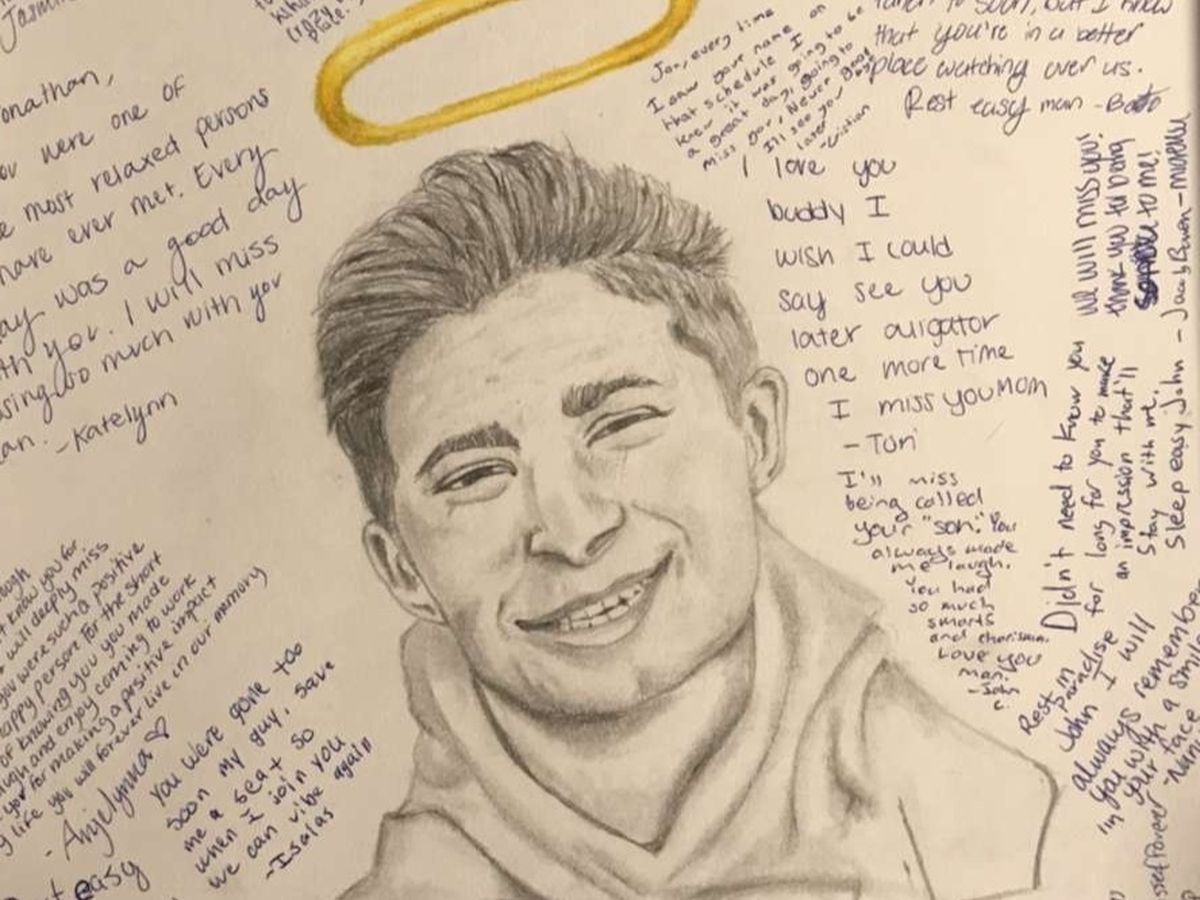 Jasmin
(crazy
place.
Jonathan,
you were one of
most relaxed persons
have ever met. Every
day was a good day
with you. I will miss
so much with you
-Katelynn
Jon, every time
I saw your name on
that schedule I
knew it was going to be
a great day, going to
miss you, Never good
I'll see you
later
-Cristian
to soon, but I know
that you're in a better
place watching over us.
Rest easy man -
I love you
buddy I
wish I could
say see you
later aligator
one more time
I miss you mom
- Turi
I'll miss
being called
your "son." You
always made
me laugh.
You had
so much
smarts
and charisma.
Love you
man!
-John
C.
We will miss you!
thank you for being
to me!
- Jacob Bowen -
Didn't need to know you
for long for you to make
an impression that'll
stay with me.
Sleep easy John
Rest in
Paradise
John I will
always remember
you with a smile
in your face
forever
know you for
will deeply miss
you were such a positive
happy person for the short
of knowing you you made
and enjoy coming to work
you for making a positive impact
life you will forever live in our memory
- Anjelynna ♡
You were gone too
soon my guy, save
me a seat so
when I join you
we can vibe again
-Isaias
easy